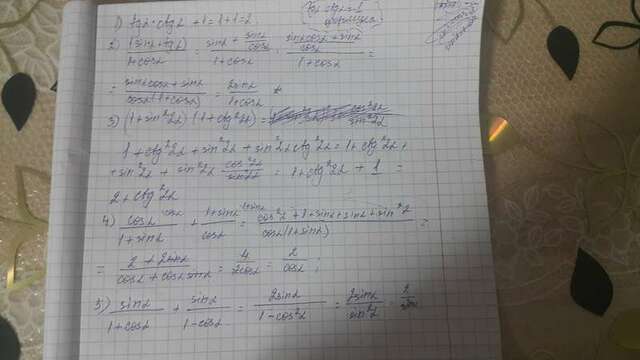 1) tgα · ctgα + 1 = 1 + 1 = 2 (tgα · ctgα = 1
формула)
2) (sinα + tgα) / (1 + cosα) = (sinα + sinα/cosα) / (1 + cosα) = ((sinα cosα + sinα)/cosα) / (1 + cosα) =
= (sinα cosα + sinα) / (cosα (1 + cosα)) = 2sinα / (1 + cosα)
3) (1 + sin²2α) · (1 + ctg²2α) =
1 + ctg²2α + sin²2α + sin²2α ctg²2α = 1 + ctg²2α +
+ sin²2α + sin²2α · cos²2α / sin²2α = 1 + ctg²2α + 1 =
2 + ctg²2α
4) cosα / (1 + sinα) + (1 + sinα) / cosα = (cos²α + 1 + sinα + sinα + sin²α) / (cosα (1 + sinα)) =
= (2 + 2sinα) / (cosα + cosα sinα) = 4 / 2cosα = 2 / cosα ;
5) sinα / (1 + cosα) + sinα / (1 − cosα) = 2sinα / (1 − cos²α) = 2sinα / sin²α = 2 / sinα